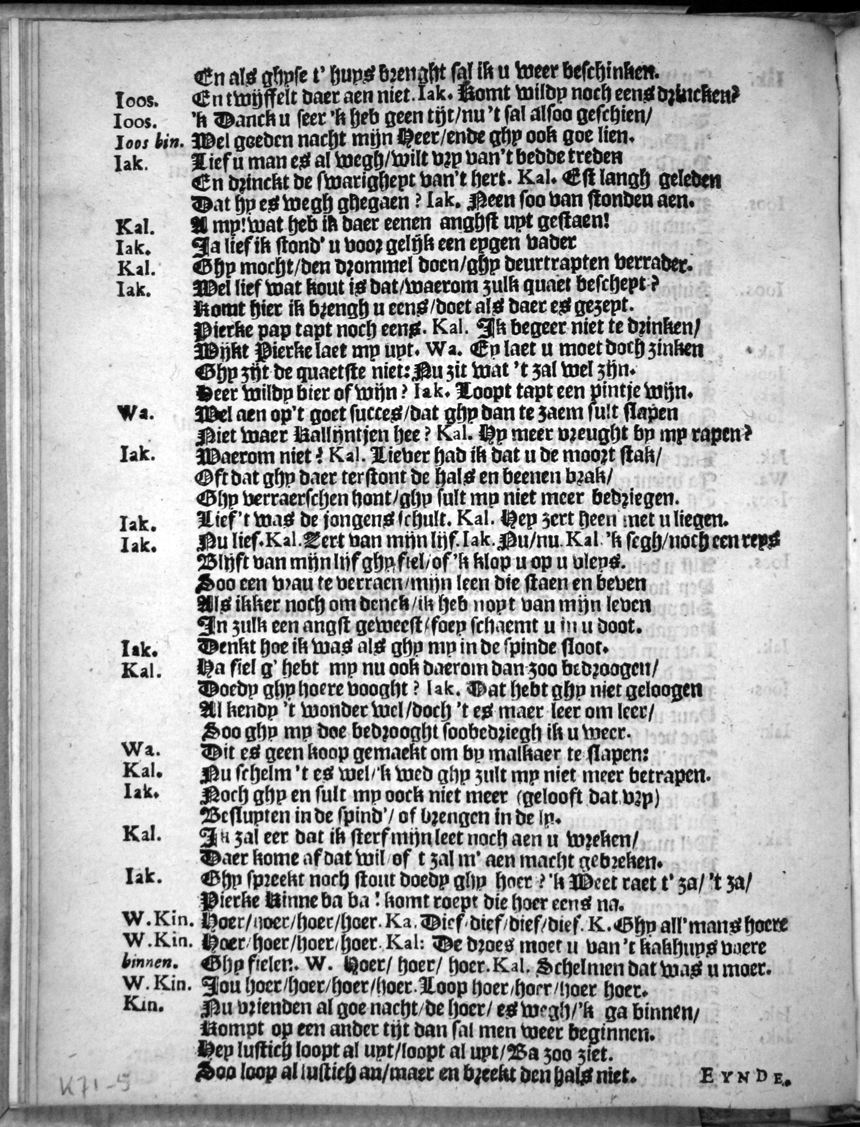 En als ghyse t' huys brenght sal ik u weer beschinken.
Ioos. En twyffelt daer aen niet. Iak. Komt wildy noch eens drincken?
Ioos. 'k Danck u seer 'k heb geen tijt/nu 't sal alsoo geschien/
Ioos bin. Wel goeden nacht mijn Heer/ende ghy ook goe lien.
Iak. Lief u man es al wegh/wilt vry van't bedde treden
En drinckt de swarigheyt van't hert. Kal. Est langh geleden
Dat hy es wegh ghegaen? Iak. Neen soo van stonden aen.
Kal. A my! wat heb ik daer eenen anghst uyt gestaen!
Iak. Ja lief ik stond' u voor gelijk een eygen vader
Kal. Ghy mocht/den drommel doen/ghy deurtrapten verrader.
Iak. Wel lief wat kout is dat/waerom zulk quaet bescheyt?
Komt hier ik brengh u eens/doet als daer es gezeyt.
Pierke pap tapt noch eens. Kal. Ik begeer niet te drinken/
Wijkt Pierke laet my uyt. Wa. Ey laet u moet doch zinken
Ghy zijt de quaetste niet: Nu zit wat 't zal wel zijn.
Heer wildy bier of wijn? Iak. Loopt tapt een pintje wijn.
Wa. Wel aen op't goet succes/dat ghy dan te zaem sult slapen
Niet waer Kallijntjen hee? Kal. Hy meer vreught by my rapen?
Iak. Waerom niet? Kal. Liever had ik dat u de moort stak/
Oft dat ghy daer terstont de hals en beenen brak/
Ghy verraerschen hont/ghy sult my niet meer bedriegen.
Iak. Lief't was de jongens schult. Kal. Hey zert heen met u liegen.
Iak. Nu lief. Kal. Zert van mijn lijf. Iak. Nu/nu. Kal. 'k segh/noch een reys
Blijft van mijn lijf ghy fiel/of 'k klop u op u vleys.
Soo een vrau te verraen/mijn leen die staen en beven
Als ikker noch om denck/ik heb noyt van mijn leven
In zulk een angst geweest/foey schaemt u in u doot.
Iak. Denkt hoe ik was als ghy my in de spinde sloot.
Kal. Ha fiel g' hebt my nu ook daerom dan zoo bedroogen/
Doedy ghy hoere vooght? Iak. Dat hebt ghy niet geloogen
Al kendy 't wonder wel/doch 't es maer leer om leer/
Soo ghy my doe bedrooght soobedriegh ik u weer.
Wa. Dit es geen koop gemaekt om by malkaer te slapen:
Kal. Nu schelm 't es wel/'k wed ghy zult my niet meer betrapen.
Iak. Noch ghy en sult my oock niet meer (gelooft dat vry)
Besluyten in de spind'/ of brengen in de ly.
Kal. Ik zal eer dat ik sterf mijn leet noch aen u wreken/
Daer kome af dat wil/of t zal m' aen macht gebreken.
Iak. Ghy spreekt noch stout doedy ghy hoer? 'k Weet raet t' za/ 't za/
Pierke Kinne ba ba! komt roept die hoer eens na.
W. Kin. Hoer/hoer/hoer/hoer. Ka. Dief/dief/dief/dief. K. Ghy all'mans hoere
W. Kin. Hoer/hoer/hoer/hoer. Kal: De droes moet u van't kakhuys voere
binnen. Ghy fielen. W. Hoer/ hoer/ hoer. Kal. Schelmen dat was u moer.
W. Kin. Jou hoer/hoer/hoer/hoer. Loop hoer/hoer/hoer hoer.
Kin. Nu vrienden al goe nacht/de hoer/ es wegh/'k ga binnen/
Kompt op een ander tijt dan sal men weer beginnen.
Hey lustich loopt al uyt/loopt al uyt/Ba zoo ziet.
Soo loop al lustich an/maer en breekt den hals niet. EYNDE.
K71-5